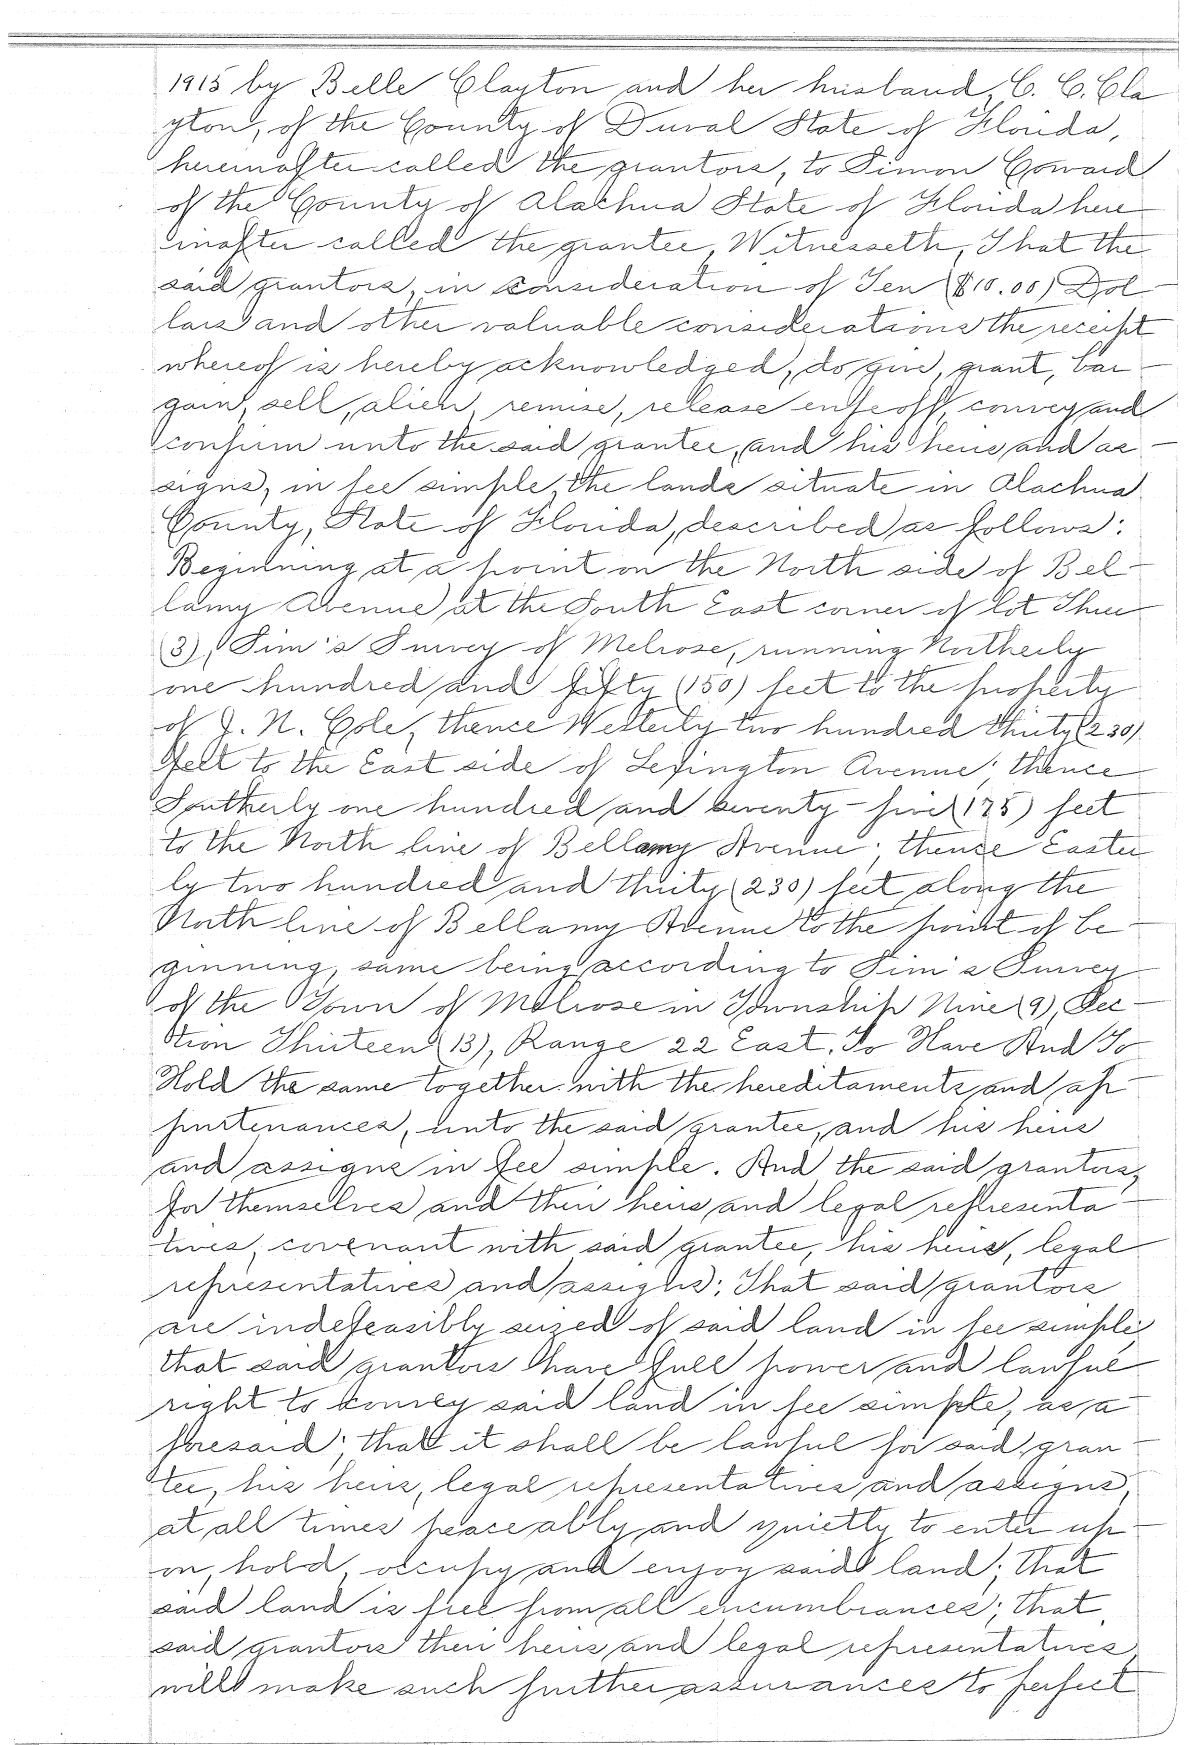 1915 by Belle Clayton and her husband, C. C. Cla
yton, of the County of Duval State of Florida,
hereinafter called the grantors, to Simon Coward
of the County of Alachua State of Florida here
inafter called the grantee, Witnesseth, That the
said grantors, in consideration of Ten ($10.00) Dol-
lars and other valuable considerations the receipt
whereof is hereby acknowledged, do give, grant, bar-
gain, sell, alien, remise, release enfeoff, convey and
confirm unto the said grantee, and his heirs and as-
signs, in fee simple, the lands situate in Alachua
County, State of Florida, described as follows:
Beginning at a point on the North side of Bel-
lamy Avenue at the South East corner of lot Three
(3), Sim's Survey of Melrose, running Northerly
one hundred and fifty (150) feet to the property
of J. N. Cole, thence Westerly two hundred thirty (230)
feet to the East side of Lexington Avenue; thence
Southerly one hundred and seventy-five (175) feet
to the North line of Bellamy Avenue; thence Easter
ly two hundred and thirty (230) feet along the
North line of Bellamy Avenue to the point of be-
ginning, same being according to Sim's Survey
of the Town of Melrose in Township Nine (9), Sec-
tion Thirteen (13), Range 22 East. To Have And To
Hold the same together with the hereditaments and ap-
purtenances, unto the said grantee, and his heirs
and assigns in fee simple. And the said grantors,
for themselves and their heirs and legal representa-
tives, covenant with said grantee, his heirs, legal
representatives and assigns: That said grantors
are indefeasibly seized of said land in fee simple;
that said grantors have full power and lawful
right to convey said land in fee simple, as a-
foresaid; that it shall be lawful for said gran-
tee, his heirs, legal representatives and assigns,
at all times peaceably and quietly to enter up-
on, hold, occupy and enjoy said land; that
said land is free from all encumbrances; that
said grantors their heirs and legal representatives,
will make such further assurances to perfect